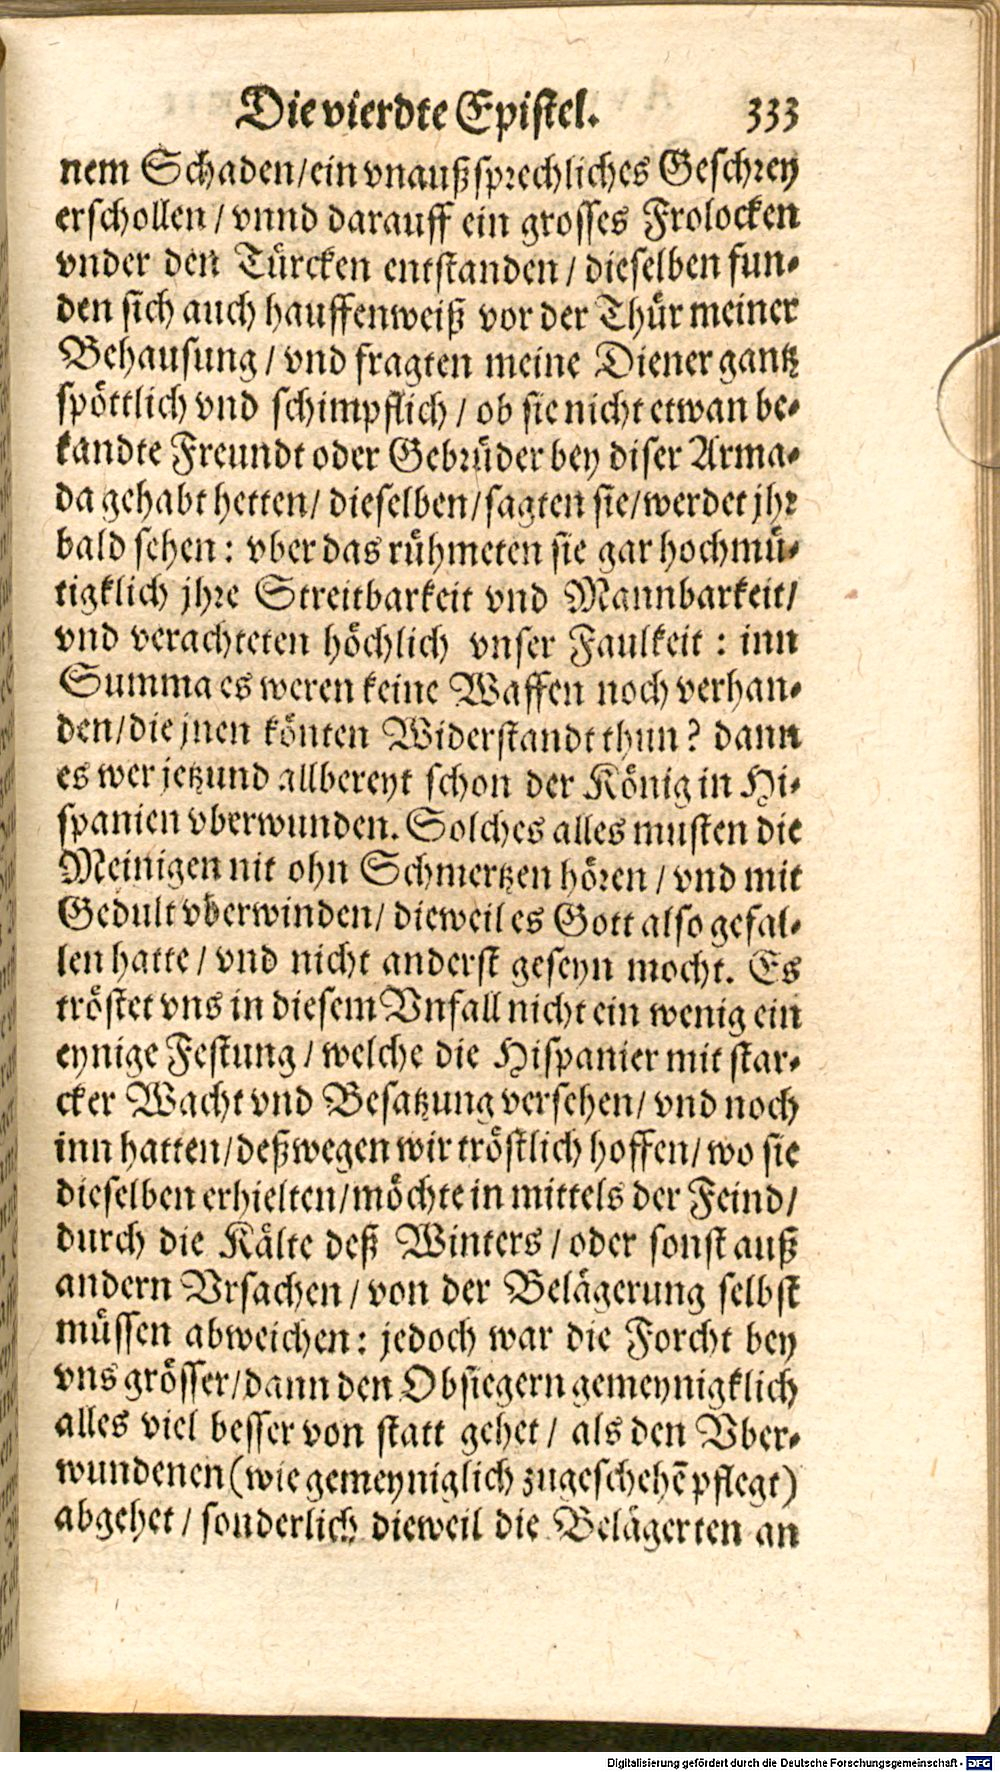 Die vierdte Epistel. 333
nem Schaden/ein vnaußsprechliches Geschrey
erschollen / vnnd darauff ein grosses Frolocken
vnder den Türcken entstanden / dieselben fun-
den sich auch hauffenweiß vor der Thür meiner
Behausung / vnd fragten meine Diener gantz
spöttlich vnd schimpflich / ob sie nicht etwan be-
kandte Freundt oder Gebrüder bey diser Arma-
da gehabt hetten/ dieselben/sagten sie/werdet jhr
bald sehen: vber das rühmeten sie gar hochmü-
tigklich jhre Streitbarkeit vnd Mannbarkeit/
vnd verachteten höchlich vnser Faulkeit : inn
Summa es weren keine Waffen noch verhan-
den/die jnen könten Widerstandt thun? dann
es wer jetzund allbereyt schon der König in Hi-
spanien vberwunden. Solches alles musten die
Meinigen nit ohn Schmertzen hören / vnd mit
Gedult vberwinden/ dieweil es Gott also gefal-
len hatte / vnd nicht anderst geseyn mocht. Es
tröstet vns in diesem Vnfall nicht ein wenig ein
eynige Festung / welche die Hispanier mit star-
cker Wacht vnd Besatzung versehen/ vnd noch
inn hatten/deßwegen wir tröstlich hoffen/ wo sie
dieselben erhielten/möchte in mittels der Feind/
durch die Kälte deß Winters / oder sonst auß
andern Vrsachen / von der Belägerung selbst
müssen abweichen: jedoch war die Forcht bey
vns grösser/dann den Obsiegern gemeynigklich
alles viel besser von statt gehet / als den Vber-
wundenen (wie gemeyniglich zugeschehē pflegt)
abgehet / sonderlich dieweil die Belägerten an
Digitalisierung gefördert durch die Deutsche Forschungsgemeinschaft - DFG